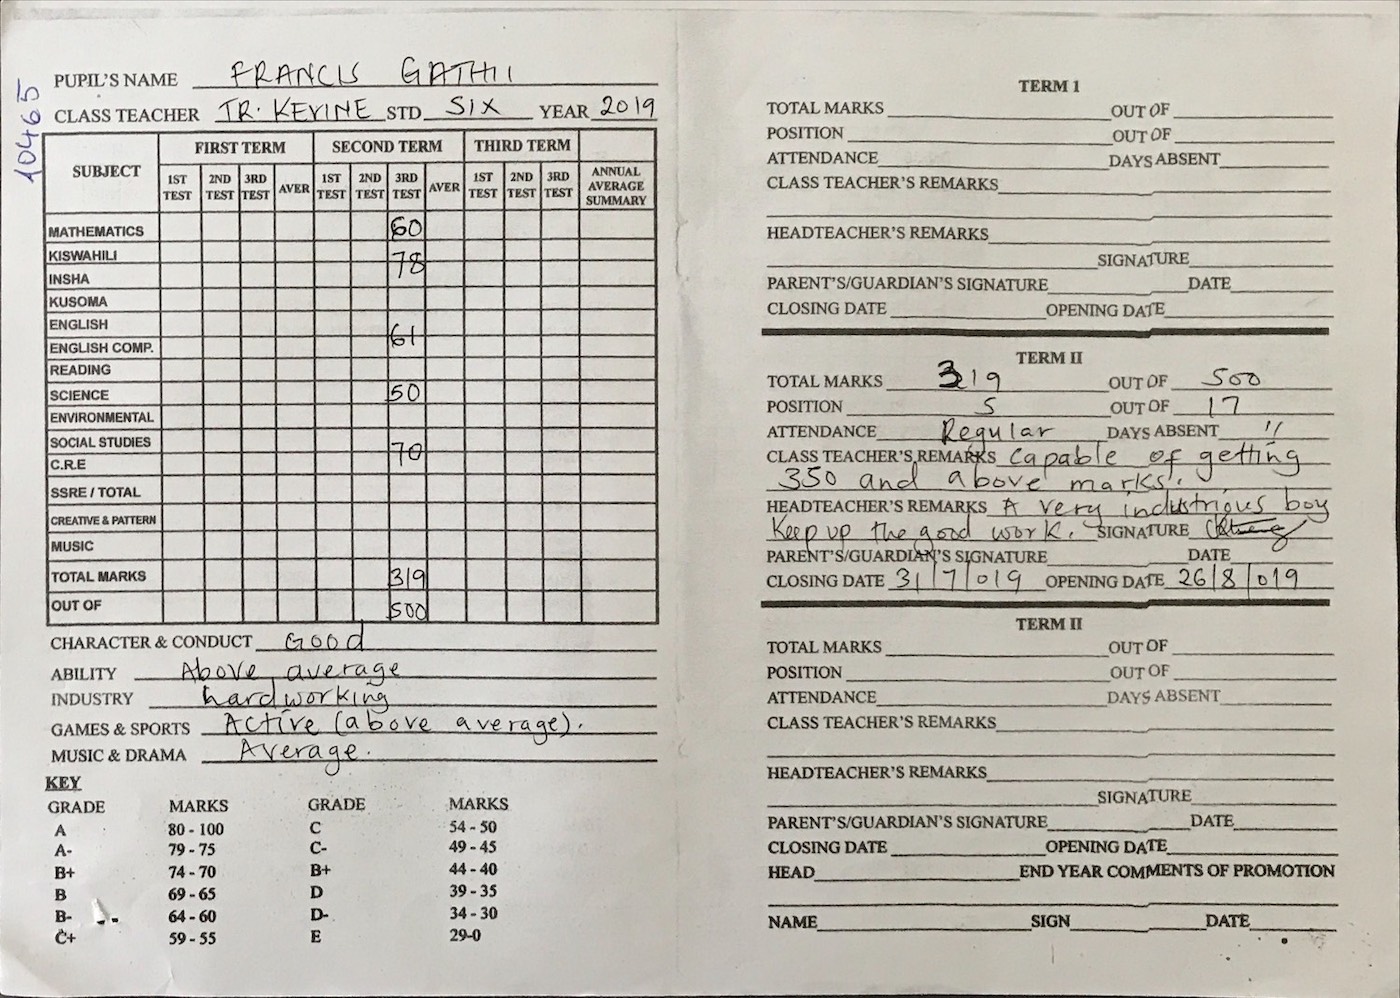 10465
PUPIL'S NAME FRANCIS GATHII
CLASS TEACHER TR. KEVINE STD SIX YEAR 2019
SUBJECT FIRST TERM SECOND TERM THIRD TERM
1ST TEST 2ND TEST 3RD TEST AVER 1ST TEST 2ND TEST 3RD TEST AVER 1ST TEST 2ND TEST 3RD TEST ANNUAL AVERAGE SUMMARY
MATHEMATICS 60
KISWAHILI 78
INSHA
KUSOMA
ENGLISH 61
ENGLISH COMP.
READING
SCIENCE 50
ENVIRONMENTAL
SOCIAL STUDIES 70
C.R.E
SSRE / TOTAL
CREATIVE & PATTERN
MUSIC
TOTAL MARKS 319
OUT OF 500
CHARACTER & CONDUCT Good
ABILITY Above average
INDUSTRY hardworking
GAMES & SPORTS Active (above average).
MUSIC & DRAMA Average.
KEY
GRADE MARKS GRADE MARKS
A 80 - 100 C 54 - 50
A- 79 - 75 C- 49 - 45
B+ 74 - 70 B+ 44 - 40
B 69 - 65 D 39 - 35
B- 64 - 60 D- 34 - 30
C+ 59 - 55 E 29-0
TERM 1
TOTAL MARKS OUT OF
POSITION OUT OF
ATTENDANCE DAYS ABSENT
CLASS TEACHER'S REMARKS
HEADTEACHER'S REMARKS
SIGNATURE
PARENT'S/GUARDIAN'S SIGNATURE DATE
CLOSING DATE OPENING DATE
TERM II
TOTAL MARKS 319 OUT OF 500
POSITION 5 OUT OF 17
ATTENDANCE Regular DAYS ABSENT "
CLASS TEACHER'S REMARKS Capable of getting
350 and above marks.
HEADTEACHER'S REMARKS A very industrious boy
Keep up the good work. SIGNATURE
PARENT'S/GUARDIAN'S SIGNATURE DATE
CLOSING DATE 31/7/019 OPENING DATE 26/8/019
TERM II
TOTAL MARKS OUT OF
POSITION OUT OF
ATTENDANCE DAYS ABSENT
CLASS TEACHER'S REMARKS
HEADTEACHER'S REMARKS
SIGNATURE
PARENT'S/GUARDIAN'S SIGNATURE DATE
CLOSING DATE OPENING DATE
HEAD END YEAR COMMENTS OF PROMOTION
NAME SIGN DATE